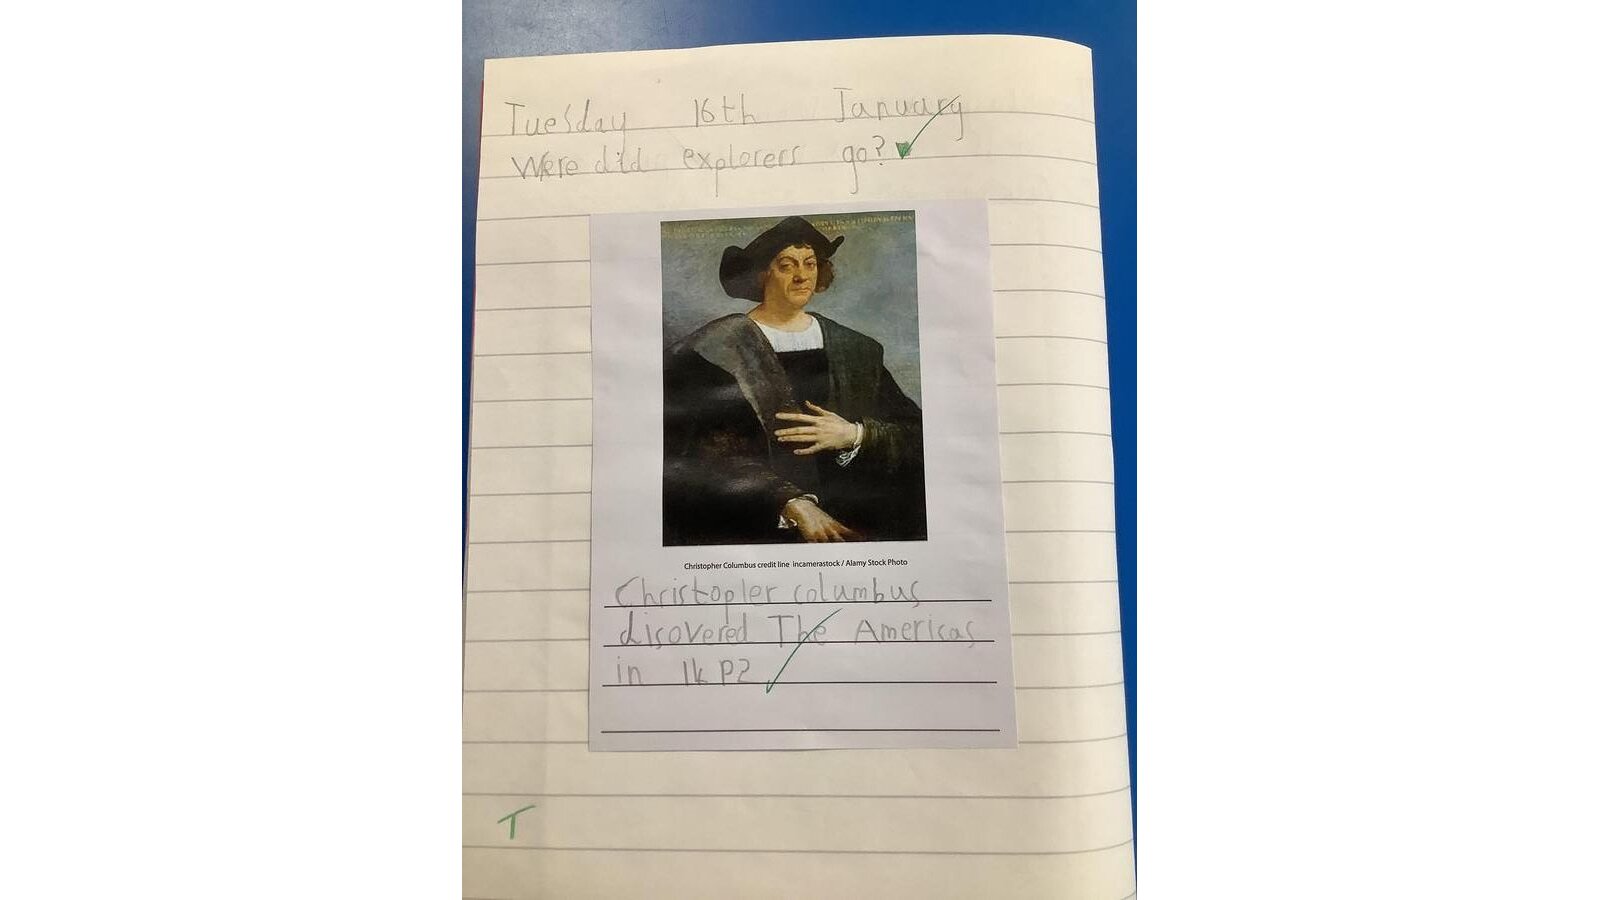 Tuesday 16th January
Were did explorers go?
Christopher Columbus credit line incamerastock / Alamy Stock Photo
Christopler columbus
disovered The Americas
in
T